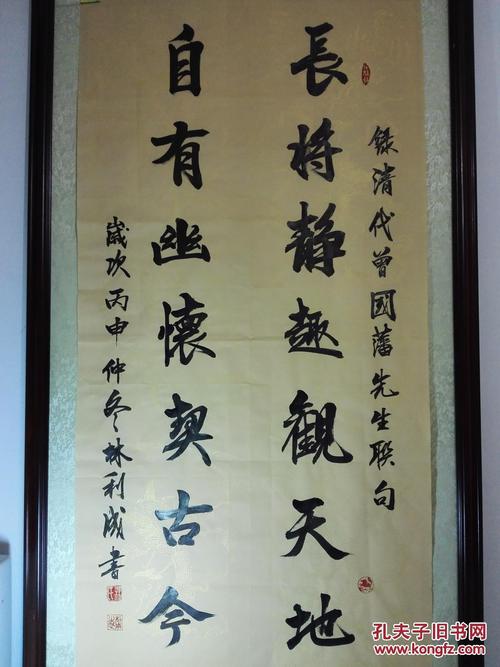 錄清代曾國藩先生联句
長將静趣觀天地
自有幽懷契古今
歲次丙申仲冬林利成書
孔夫子旧书网
www.kongfz.com